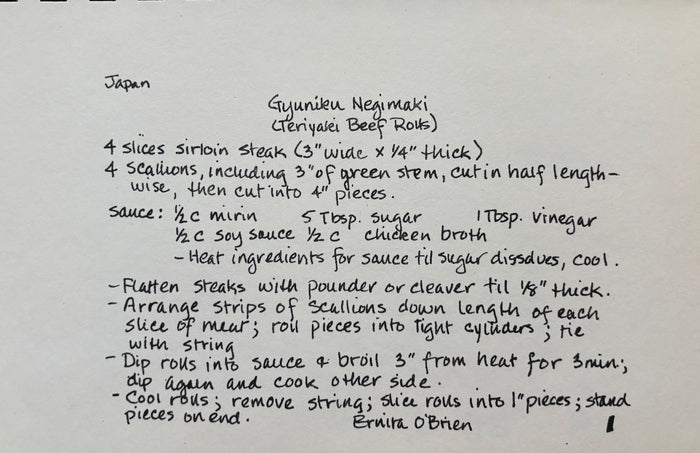 Japan
Gyuniku Negimaki
(Teriyaki Beef Rolls)
4 slices sirloin steak (3" wide x 1/4" thick)
4 scallions, including 3" of green stem, cut in half length-
wise, then cut into 4" pieces.
Sauce: 1/2 c mirin 5 Tbsp. sugar 1 Tbsp. vinegar
1/2 c soy sauce 1/2 c chicken broth
- Heat ingredients for sauce til sugar dissolves, cool.
- Flatten steaks with pounder or cleaver til 1/8" thick.
- Arrange strips of scallions down length of each
slice of meat; roll pieces into tight cylinders; tie
with string
- Dip rolls into sauce & broil 3" from heat for 3 min;
dip again and cook other side.
- Cool rolls; remove string; slice rolls into 1" pieces; stand
pieces on end. Ernita O'Brien